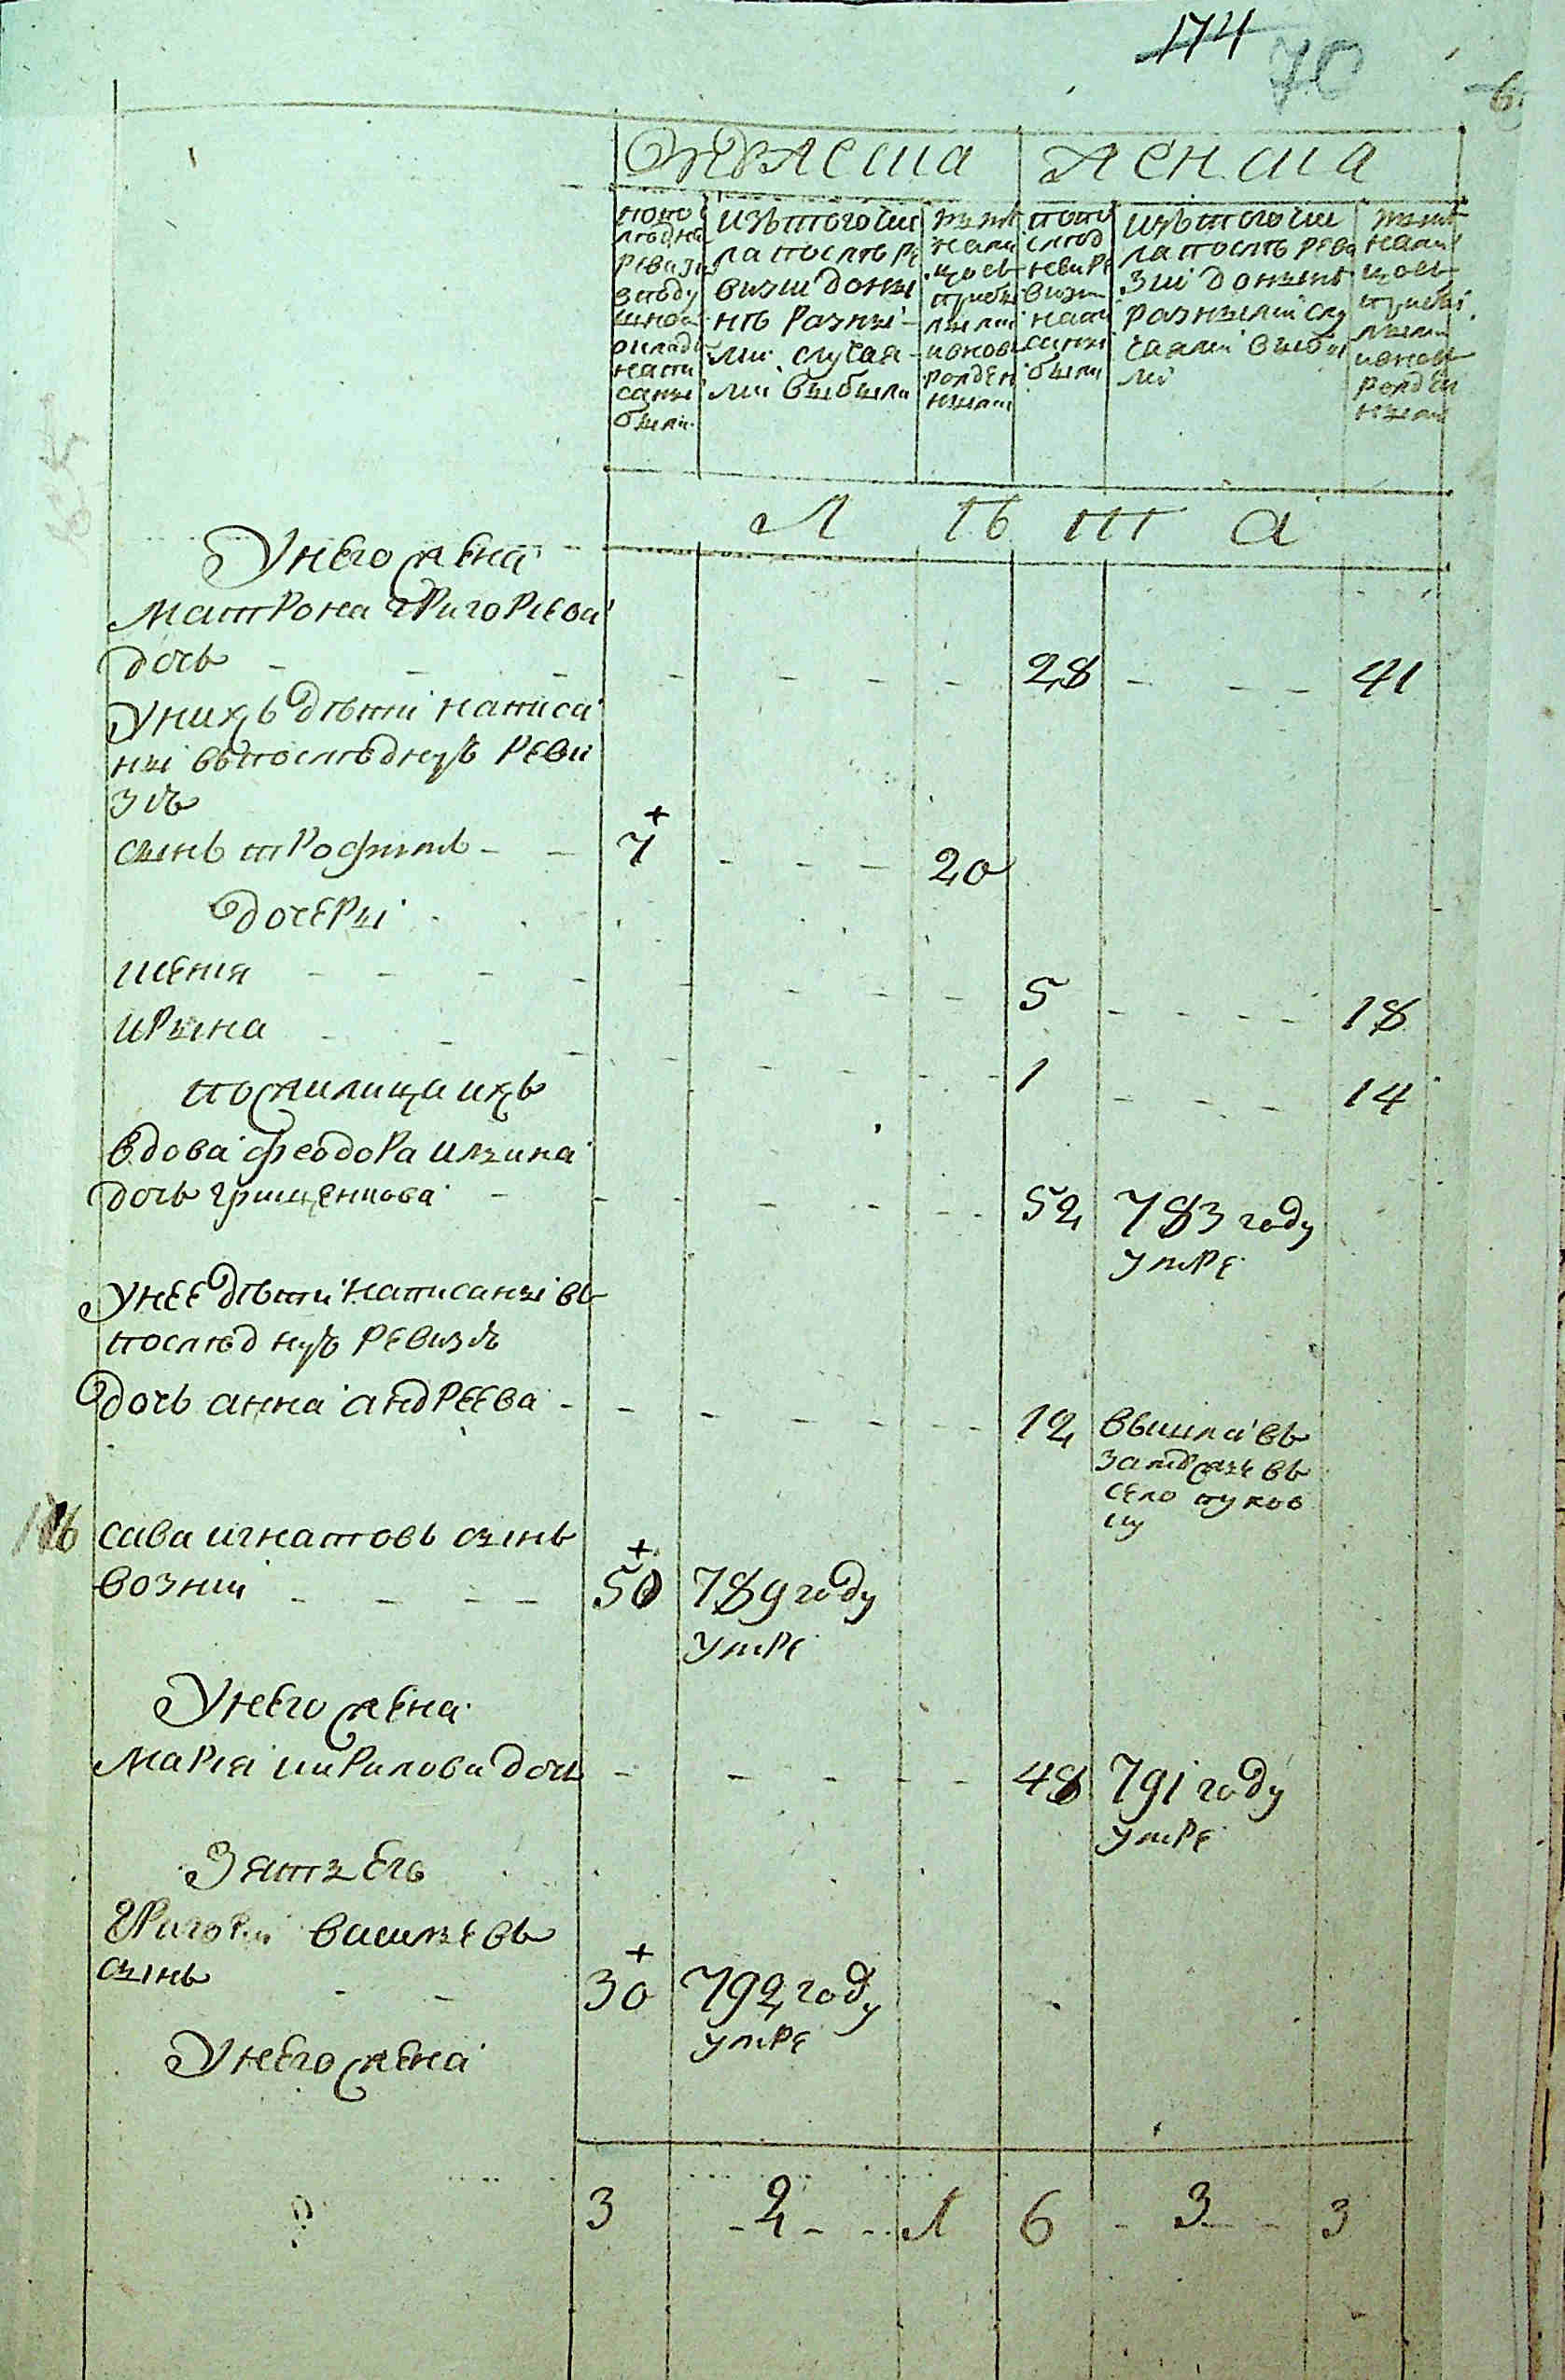 174
70
6
мужеска женска
попо
следне
ревизи
зподу
шной
окладъ
напи
саны
были
изътогочи
ла послѣ ре
визии донн
нѣ разны
ми случая
ми выбыли
нынѣ
нали
цосъ
прибы
лыми
ивновъ
рожден
ными
попо
след
неи ре
визи
напи
саны
были
изътогочи
ла послѣ реви
зии донынѣ
разными слу
чаями выбы
ли
нынѣ
нали
цосъ
прибы
лыми
ивновъ
рожден
ными
лѣта
Унего жена
матрона григорева
дочь 28 41
Унихъ дѣти написа
ны впослѣднуюъ реви
зию
сынъ трофимъ 7 20
дочеры
ксения 5 18
ирына 1 14
пожилица ихъ
вдова феодора илина
дочь грищенкова 52 783 году
умре
Унее дѣти написаны въ
последнюю ревизию
дочь анна андреева 12 вышла въ
замужже въ
село жуков
ку
176 сава игнатовъ сынъ
возний 50 789 году
умре
Унего жена
мария кирилова дочь 48 791 году
умре
Зять его
григорий василевъ
сынъ 30 792 году
умре
Унего жена
3 2 1 6 3 3